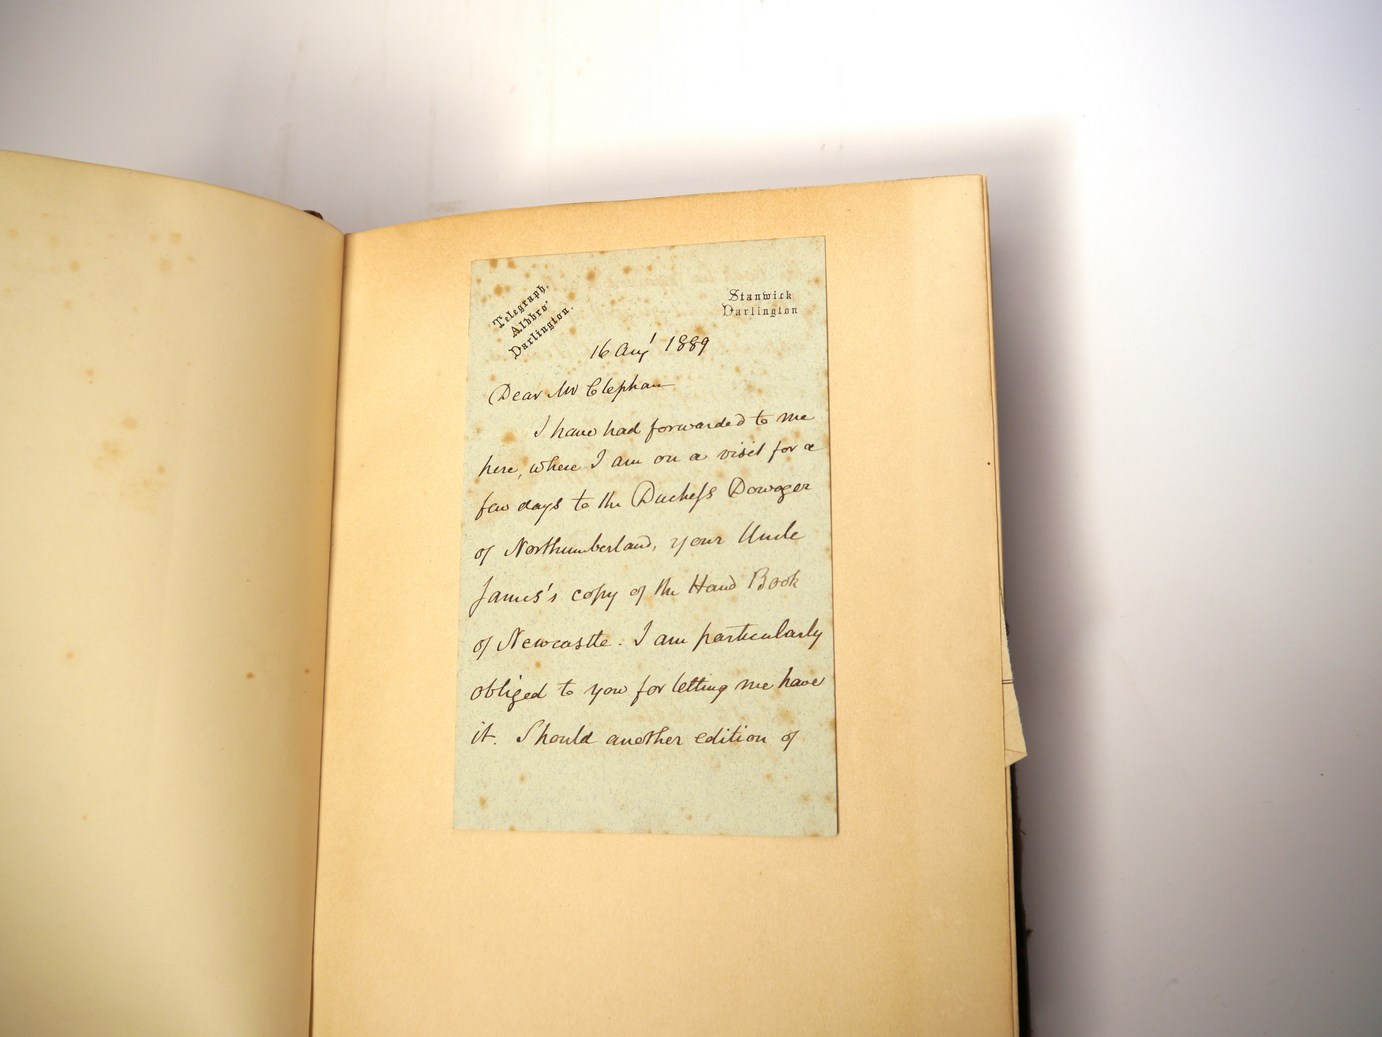 Telegraph,
Albbro'
Darlington.
Stanwick
Darlington
16 Augt 1889
Dear Mr Clephan
I have had forwarded to me
here, where I am on a visit for a
few days to the Duchess Dowager
of Northumberland, your Uncle
James's copy of the Hand Book
of Newcastle. I am particularly
obliged to you for letting me have
it. Should another edition of